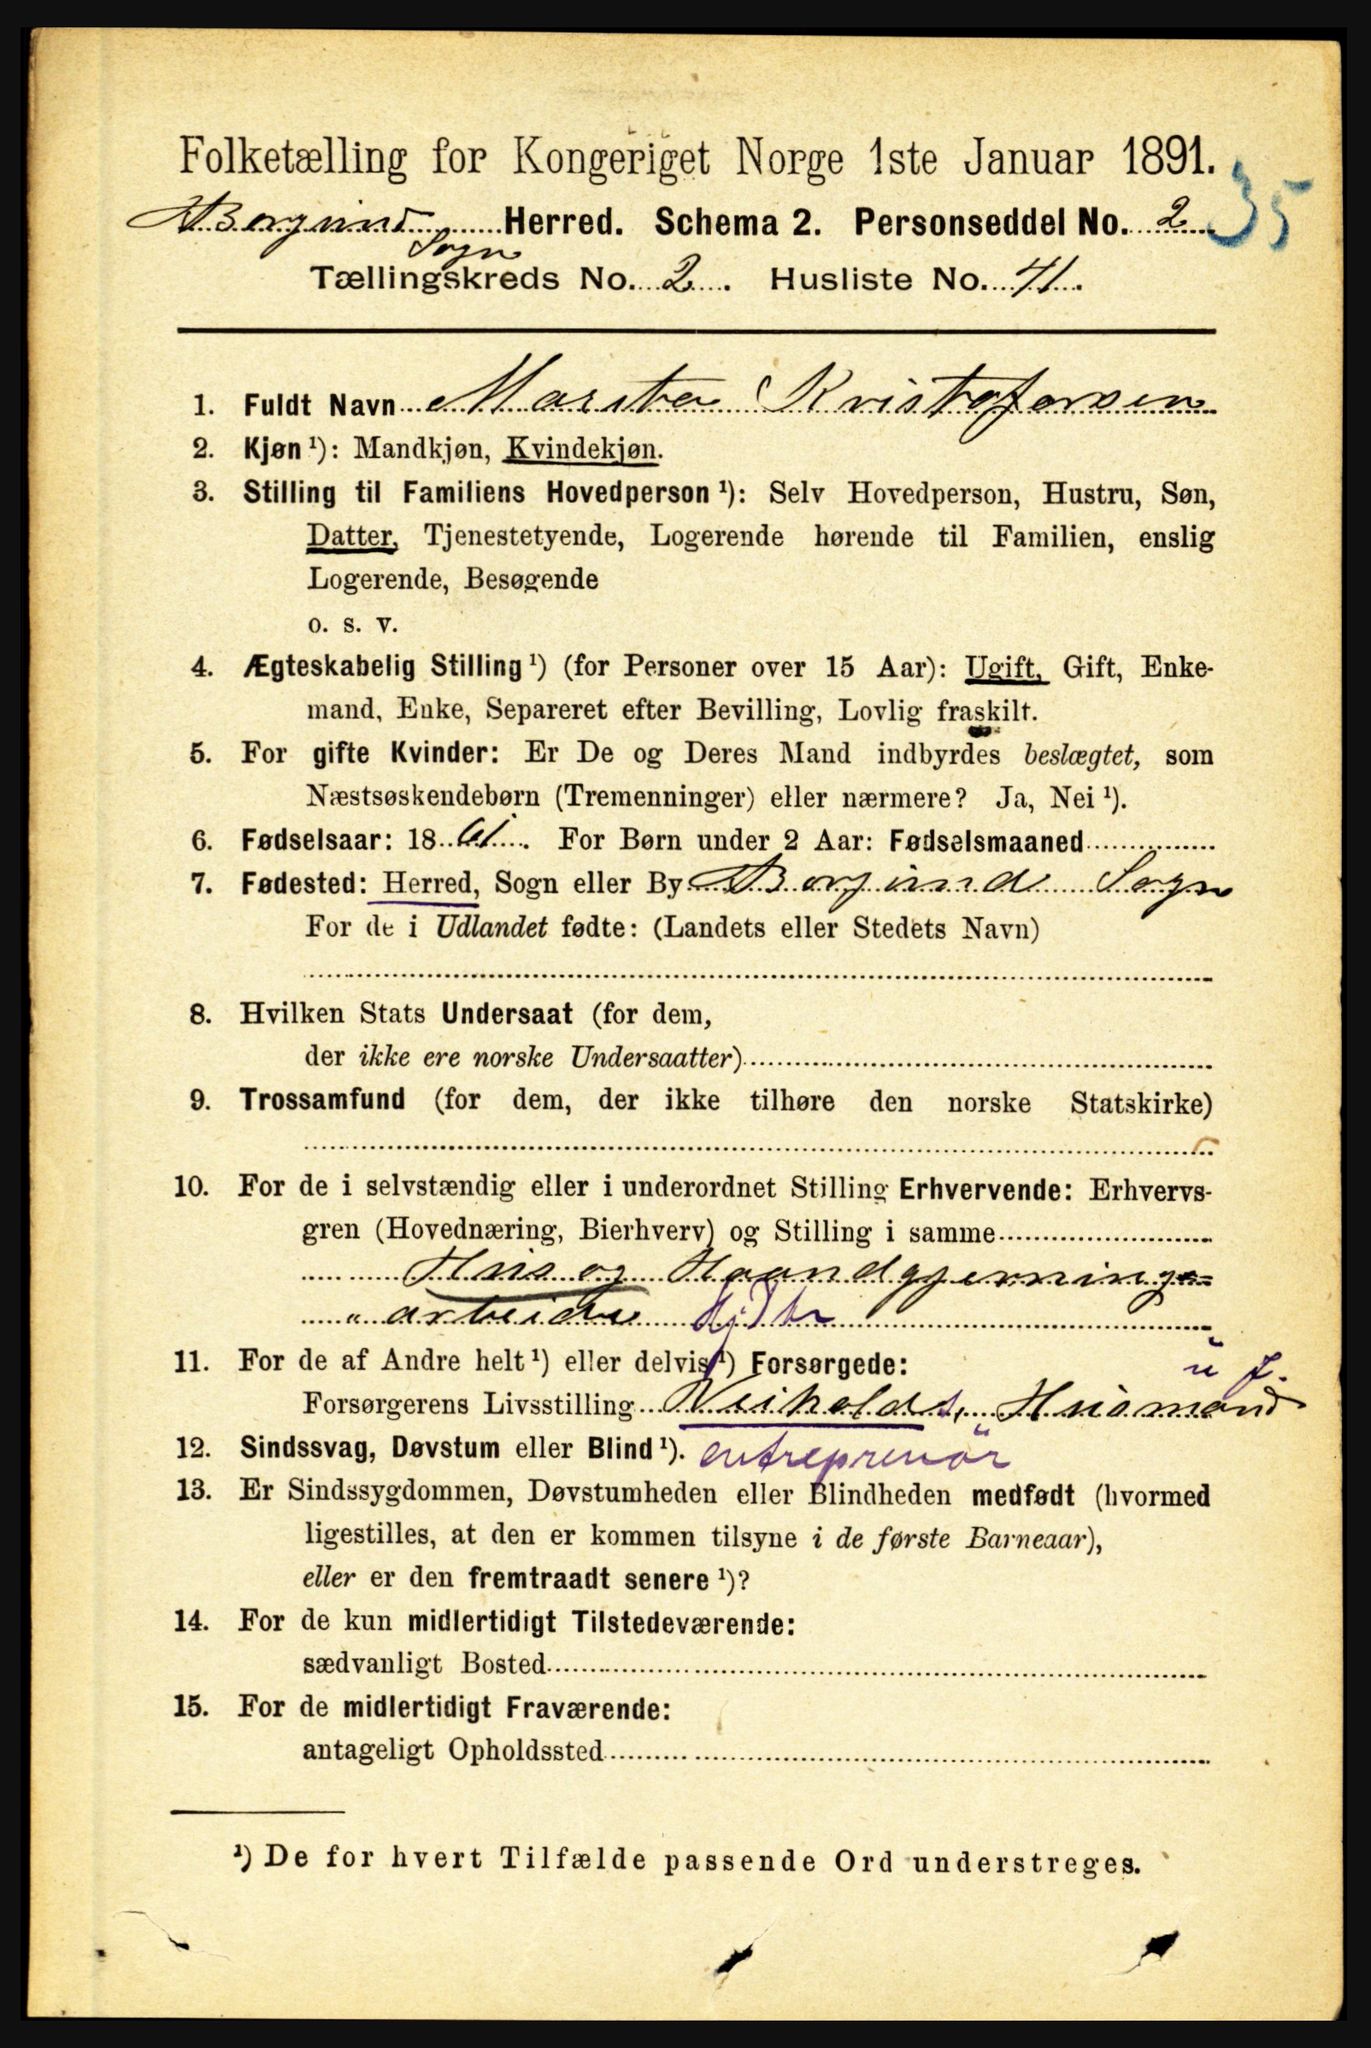 Folketælling for Kongeriget Norge 1ste Januar 1891.
35
Borgund Herred. Schema 2. Personseddel No. 2
Sogn
Tællingskreds No. 2. Husliste No. 41.
1. Fuldt Navn Marta Kristofersen
2. Kjøn ¹): Mandkjøn, Kvindekjøn.
3. Stilling til Familiens Hovedperson ¹): Selv Hovedperson, Hustru, Søn,
Datter, Tjenestetyende, Logerende hørende til Familien, enslig
Logerende, Besøgende
o. s. v.
4. Ægteskabelig Stilling ¹) (for Personer over 15 Aar): Ugift, Gift, Enke-
mand, Enke, Separeret efter Bevilling, Lovlig fraskilt.
5. For gifte Kvinder: Er De og Deres Mand indbyrdes beslægtet, som
Næstsøskendebørn (Tremenninger) eller nærmere? Ja, Nei ¹).
6. Fødselsaar: 1861. For Børn under 2 Aar: Fødselsmaaned
7. Fødested: Herred, Sogn eller By Borgund Sogn
For de i Udlandet fødte: (Landets eller Stedets Navn)
8. Hvilken Stats Undersaat (for dem,
der ikke ere norske Undersaatter)
9. Trossamfund (for dem, der ikke tilhøre den norske Statskirke)
10. For de i selvstændig eller i underordnet Stilling Erhvervende: Erhvervs-
gren (Hovednæring, Bierhverv) og Stilling i samme
Hus og Haandgjernings=
arbeide
11. For de af Andre helt ¹) eller delvis ¹) Forsørgede:
Forsørgerens Livsstilling Veiholds, Husmand
12. Sindssvag, Døvstum eller Blind ¹). entreprenör
13. Er Sindssygdommen, Døvstumheden eller Blindheden medfødt (hvormed
ligestilles, at den er kommen tilsyne i de første Barneaar),
eller er den fremtraadt senere ¹)?
14. For de kun midlertidigt Tilstedeværende:
sædvanligt Bosted
15. For de midlertidigt Fraværende:
antageligt Opholdssted
¹) De for hvert Tilfælde passende Ord understreges.